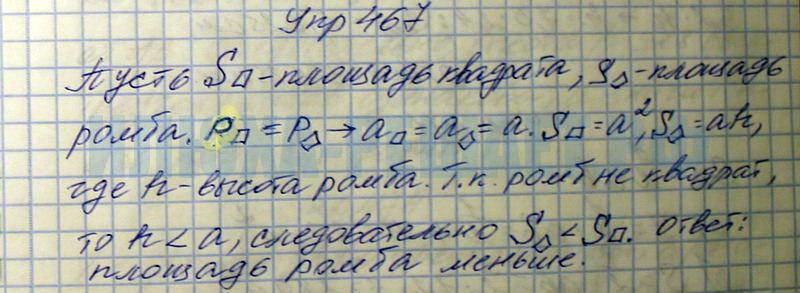 Упр 467
Пусть S□ - площадь квадрата, S◇ - площадь
ромба. P□ = P◇ → a□ = a◇ = a. S□ = a², S◇ = ah,
где h - высота ромба. Т.к. ромб не квадрат,
то h < a, следовательно S◇ < S□. Ответ:
площадь ромба меньше.